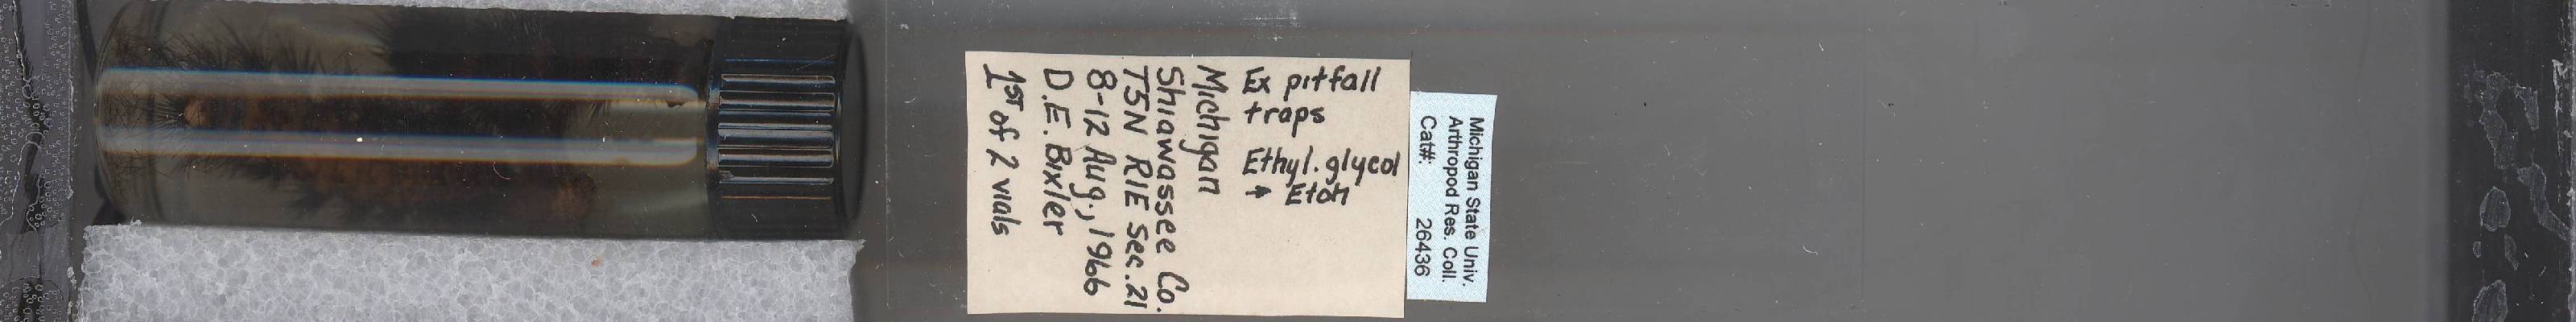 Ex pitfall
traps
Ethyl. glycol
→ Etoh
Michigan
Shiawassee Co.
T5N R1E Sec. 21
8-12 Aug., 1966
D.E. Bixler
1ST of 2 vials
Michigan State Univ.
Arthropod Res. Coll.
Cat#: 26436